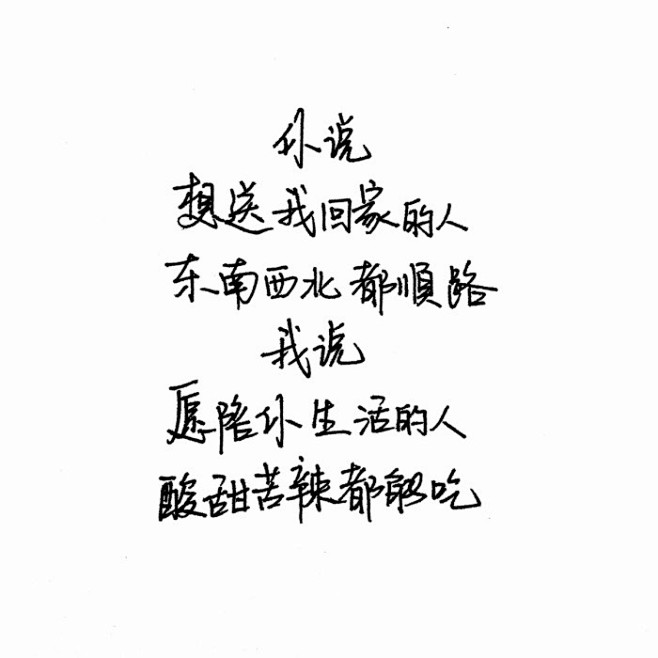 你说
想送我回家的人
东南西北都顺路
我说
愿陪你生活的人
酸甜苦辣都能吃